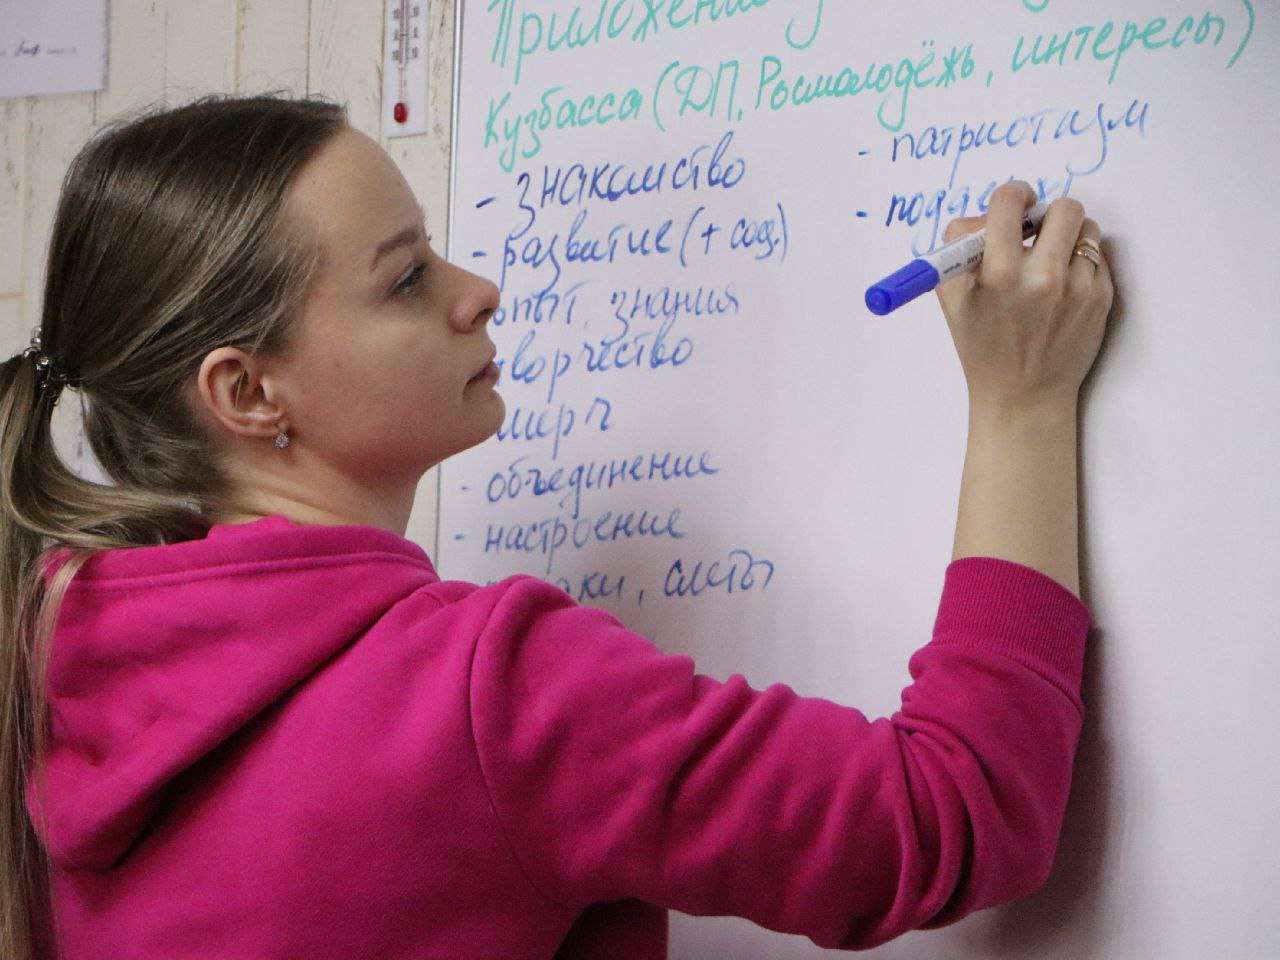 Приложение
Кузбасса (ДП, Росмолодёжь, интересы)
- знакомство
- развитие (+ соц.)
опыт, знания
творчество
мерч
- объединение
- настроение
слеты
- патриотизм